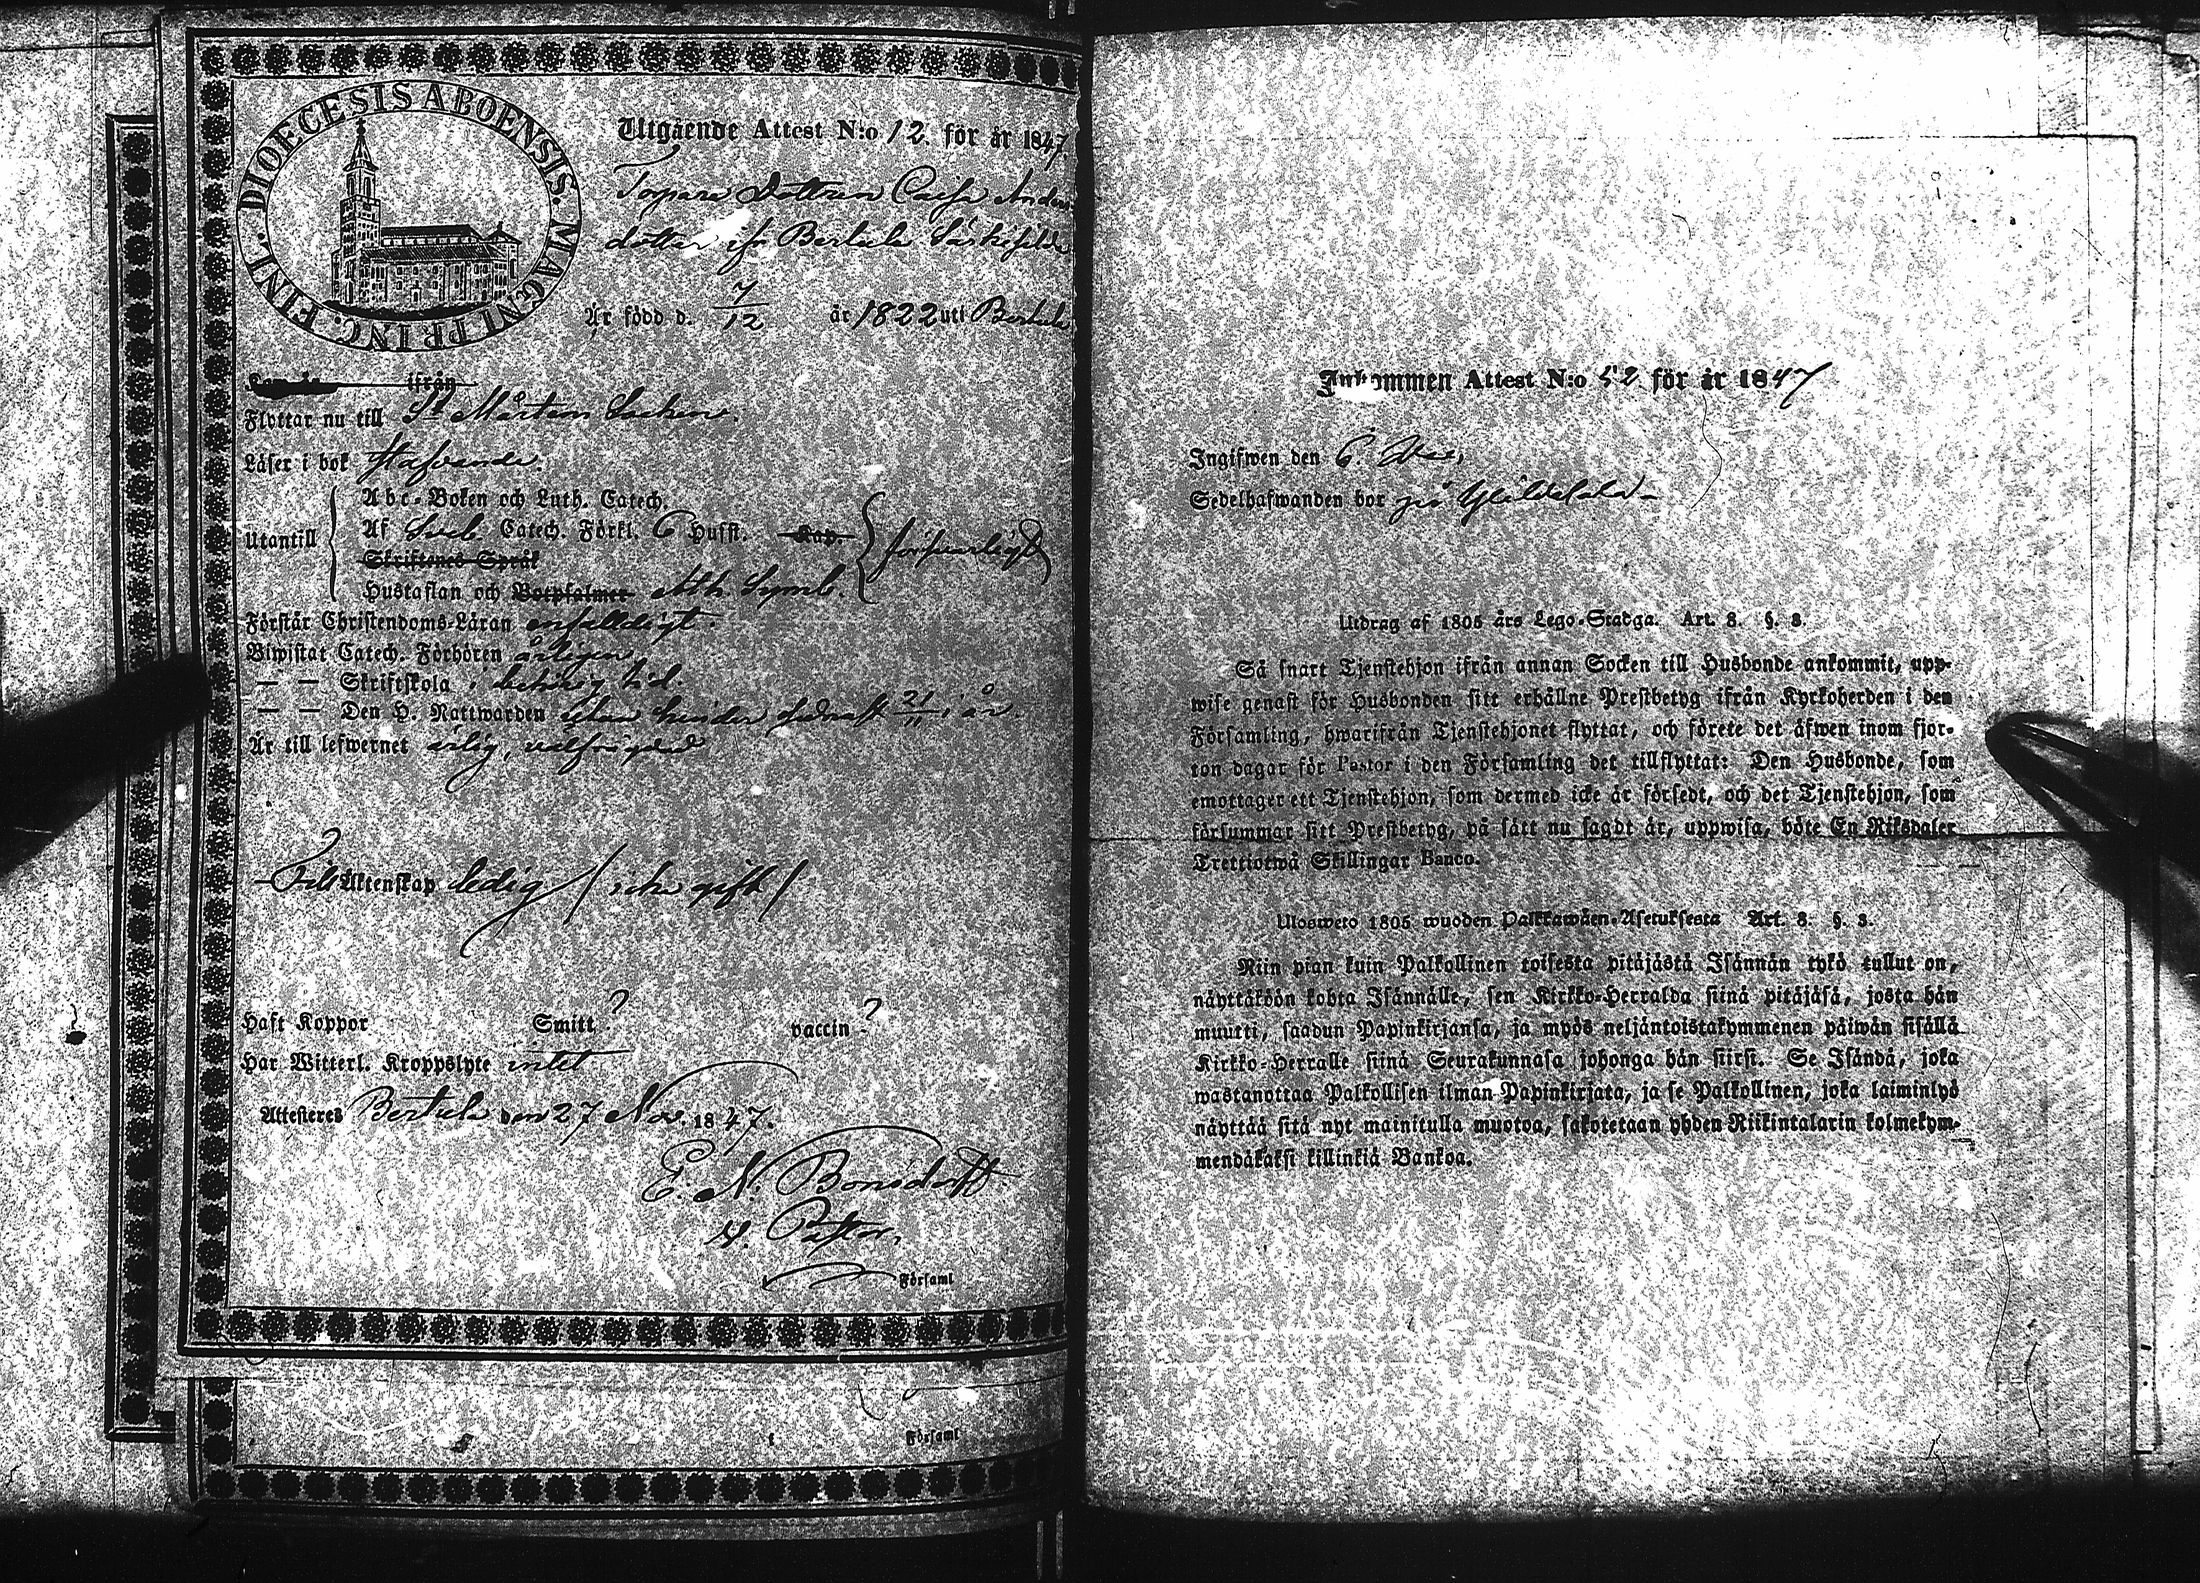 DIOECESIS ABOENSIS. MAGNI PRINC. FINL.
Utgående Attest N:o 12. för år 1847.
Torpare Dottren Caisa Anders
dotter ifr Bertula
Är född d. 7/12 år 1822 uti Bertula
ifrån
Flyttar nu till St Mårtens Socken.
Läser i bok
Utantill
Abc-Boken och Luth. Catech.
Af Sveb. Catech. Förkl. 6 Hufst. Kap.
försvarligt
Skriftenes Språk
Hustaflan och Botpsalmer Ath. Symb.
Förstår Christendoms-Läran enfalldigt.
Biwistat Catech. Förhören årligen
— — Skriftskola i behörig tid.
— — Den H. Nattwarden utan hinder sednast 21/11 i år.
Är till lefwernet ärlig, välfrägdad
Till Äktenskap ledig / icke gift /
Haft Koppor Smitt ? vaccin ?
Har Witterl. Kroppslyte intet
Attesteras Bertula den 27 Nov. 1847.
E. N. Bonsdorff
Pastor.
Församl
Församl
Inkommen Attest N:o 52 för år 1847
Ingifwen den 6.
Sedelhafwanden bor på
Utdrag af 1805 års Lego-Stadga. Art. 8. §. 3.
Så snart Tjenstehjon ifrån annan Socken till Husbonde ankommit, upp-
wise genast för Husbonden sitt erhållne Prestbetyg ifrån Kyrkoherden i den
Församling, hwarifrån Tjenstehjonet flyttat, och förete det äfwen inom fjor-
ton dagar för Pastor i den Församling det tillflyttat: Den Husbonde, som
emottager ett Tjenstehjon, som dermed icke är försedt, och det Tjenstehjon, som
försummar sitt Prestbetyg, på sätt nu sagdt är, uppwisa, böte En Riksdaler
Trettiotwå Skillingar Banco.
Ulosweto 1805 wuoden Palkkawäen-Asetuksesta Art. 8. §. 3.
Niin pian kuin Palkollinen toisesta pitäjästä Isännän tykö tullut on,
näyttäköön kohta Isännälle, sen Kirkko-Herralda siinä pitäjäsä, josta hän
muutti, saadun Papinkirjansa, ja myös neljäntoistakymmenen päiwän sisällä
Kirkko-Herralle siinä Seurakunnasa johonga hän siirsi. Se Isändä, joka
wastanottaa Palkollisen ilman Papinkirjata, ja se Palkollinen, joka laiminlyö
näyttää sitä nyt mainitulla muotoa, sakotetaan yhden Riikintalarin kolmekym-
mendäkaksi killinkiä Bankoa.